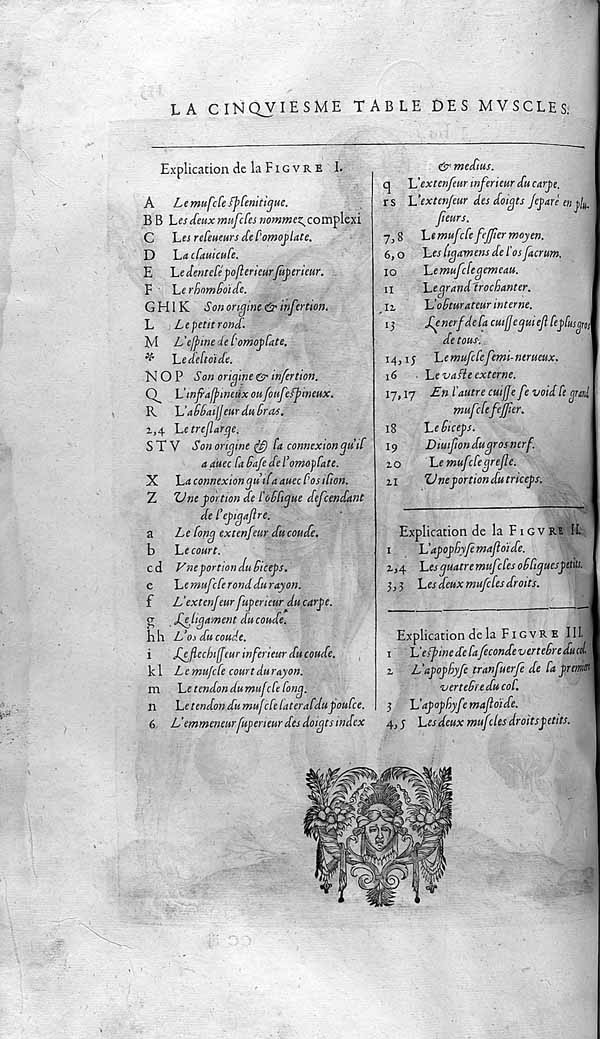 LA CINQVIESME TABLE DES MVSCLES.
Explication de la FIGVRE I.
A Le muſcle ſplenitique.
BB Les deux muſcles nommez complexi
C Les releueurs de l'omoplate.
D La clauicule.
E Le dentelé poſterieur ſuperieur.
F Le rhomboïde.
GHIK Son origine & inſertion.
L Le petit rond.
M L'eſpine de l'omoplate.
* Le deltoïde.
NOP Son origine & inſertion.
Q L'infraſpineux ou ſouſeſpineux.
R L'abbaiſſeur du bras.
2,4 Le treſlarge.
STV Son origine & la connexion qu'il
a auec la baſe de l'omoplate.
X La connexion qu'il a auec l'os ilion.
Z Vne portion de l'oblique deſcendant
de l'epigaſtre.
a Le long extenſeur du coude.
b Le court.
cd Vne portion du biceps.
e Le muſcle rond du rayon.
f L'extenſeur ſuperieur du carpe.
g Le ligament du coude.
hh L'os du coude.
i Le flechiſſeur inferieur du coude.
kl Le muſcle court du rayon.
m Le tendon du muſcle long.
n Le tendon du muſcle lateral du poulce.
6 L'emmeneur ſuperieur des doigts index
& medius.
q L'extenſeur inferieur du carpe.
rs L'extenſeur des doigts ſeparé en plu
ſieurs.
7,8 Le muſcle feſſier moyen.
6,0 Les ligamens de l'os ſacrum.
10 Le muſcle gemeau.
11 Le grand trochanter.
12 L'obturateur interne.
13 Le nerf de la cuiſſe qui eſt le plus gros
de tous.
14,15 Le muſcle ſemi-nerueux.
16 Le vaſte externe.
17,17 En l'autre cuiſſe ſe void le grand
muſcle feſſier.
18 Le biceps.
19 Diuiſion du gros nerf.
20 Le muſcle greſle.
21 Vne portion du triceps.
Explication de la FIGVRE II.
1 L'apophyſe maſtoïde.
2,4 Les quatre muſcles obliques petits.
3,3 Les deux muſcles droits.
Explication de la FIGVRE III.
1 L'eſpine de la ſeconde vertebre du col.
2 L'apophyſe tranſuerſe de la premiere
vertebre du col.
3 L'apophyſe maſtoïde.
4,5 Les deux muſcles droits petits.